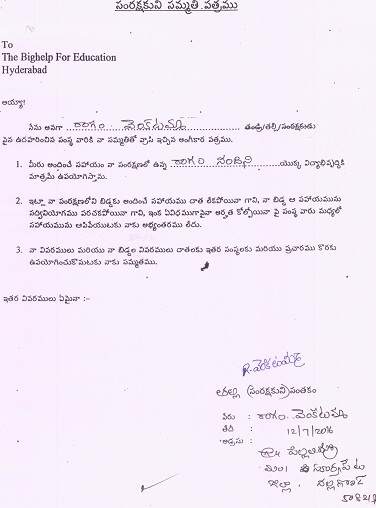 సంరక్షకుని సమ్మతి పత్రము
To
The Bighelp For Education
Hyderabad
అయ్యా!
నేను అనగా కారింగం వెంకటమ్మ తండ్రి/తల్లి/సంరక్షకుడు
పైన ఉదహరించిన సంస్థ వారికి నా సమ్మతితో వ్రాసి ఇచ్చిన అంగీకార పత్రము.
1. మీరు అందించే సహాయం నా సంరక్షణలో ఉన్న నందిని యొక్క విద్యాభివృద్ధికి
మాత్రమే ఉపయోగిస్తాను.
2. ఇట్లా నా సంరక్షణలోని బిడ్డకు అందించే సహాయము దాత లేకపోయినా గాని, నా బిడ్డ ఆ సహాయమును
సద్వినియోగము పరచకపోయినా గాని, ఇంక వివిధముగానైనా అర్హత కోల్పోయినా పై సంస్థ వారు మధ్యలో
సహాయమును ఆపివేయుటకు నాకు అభ్యంతరము లేదు.
3. నా వివరములు మరియు నా బిడ్డల వివరములు దాతలకు ఇతర సంస్థలకు మరియు ప్రచారము కొరకు
ఉపయోగించుకొనుటకు నాకు సమ్మతము.
ఇతర వివరములు ఏమైనా :-
తల్లి (సంరక్షకుని) సంతకం
పేరు : వెంకటమ్మ
తేది : 12/7/2016
అడ్రసు :
సూర్యపేట
జిల్లా. నల్గొండ